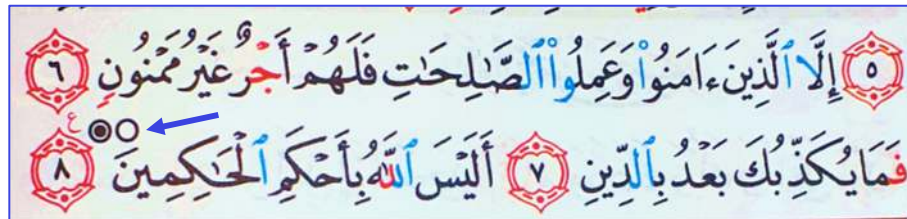 ٥ إِلَّا ٱلَّذِينَ ءَامَنُوا۟ وَعَمِلُوا۟ ٱلصَّـٰلِحَـٰتِ فَلَهُمۡ أَجۡرٌ غَيۡرُ مَمۡنُونٍ ٦
ع
فَمَا يُكَذِّبُكَ بَعۡدُ بِٱلدِّينِ ٧ أَلَيۡسَ ٱللَّهُ بِأَحۡكَمِ ٱلۡحَـٰكِمِينَ ٨